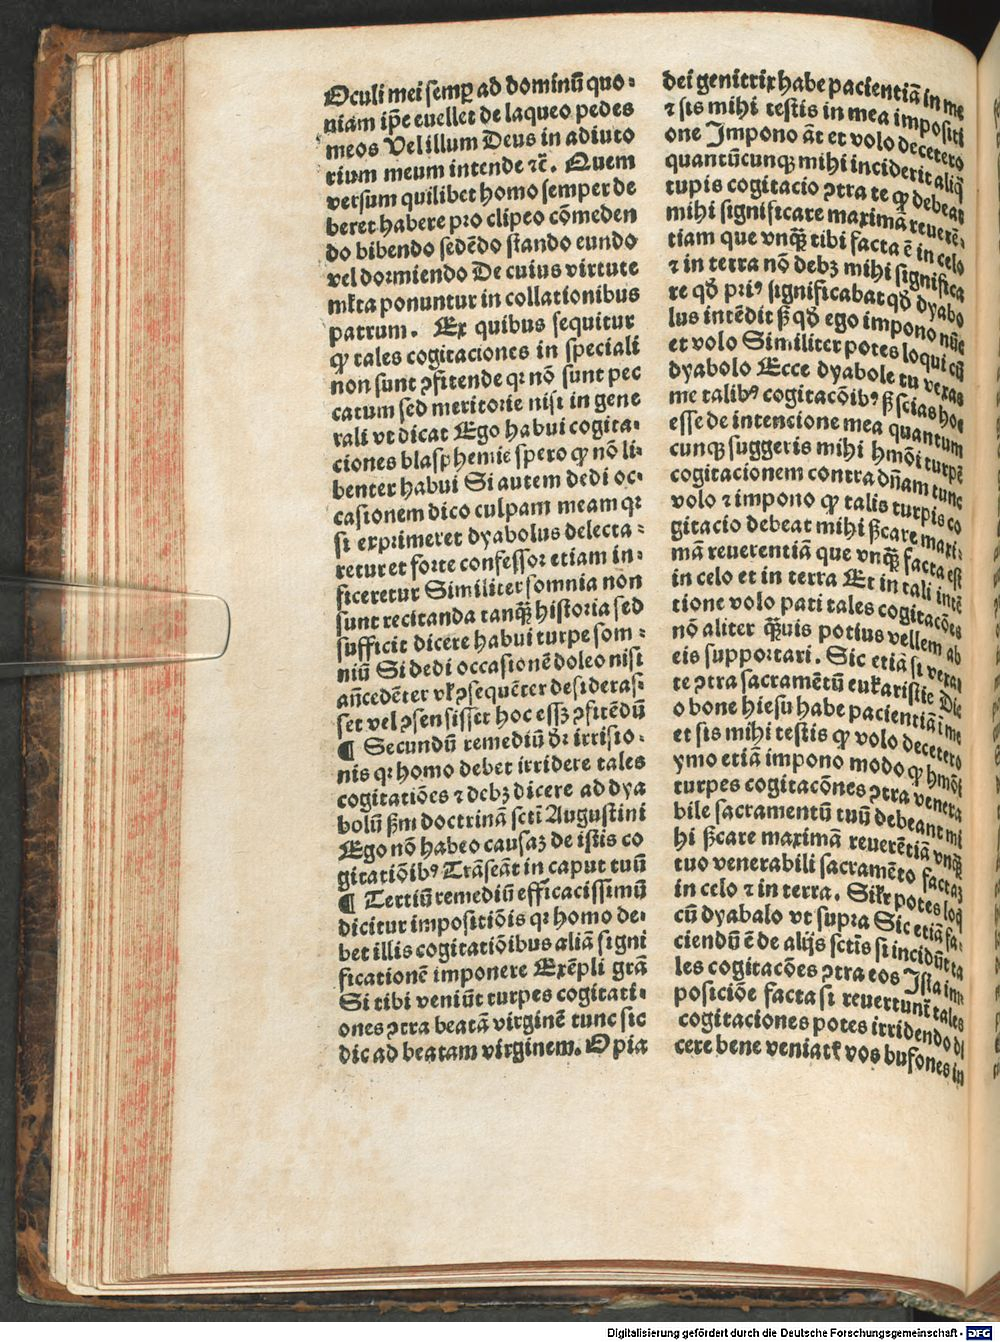 Oculi mei semꝑ ad dominū quo⸗
niam ip̄e euellet de laqueo pedes
meos Vel illum Deus in adiuto
rium meum intende ⁊c̄. Quem
versum quilibet homo semper de
beret habere pro clipeo cōmeden
do bibendo sedēdo stando eundo
vel dormiendo De cuius virtute
mɫta ponuntur in collationibus
patrum. Ex quibus sequitur
ꝙ tales cogitaciones in speciali
non sunt ꝯfitende qꝛ nō sunt pec
catum sed meritorie nisi in gene
rali vt dicat Ego habui cogita⸗
ciones blasphemie spero ꝙ nō li⸗
benter habui Si autem dedi oc⸗
casionem dico culpam meam qꝛ
si exprimeret dyabolus delecta⸗
retur et forte confessor etiam in⸗
ficeretur Similiter somnia non
sunt recitanda tanq̄ꝫ historia sed
sufficit dicere habui turpe som⸗
niū Si dedi occasionē doleo nisi
an̄cedēter vɫ ꝯsequēter desideras⸗
set vel ꝯsensisset hoc essꝫ ꝯfitēdū
¶ Secundū remediū dr̄ irrisio⸗
nis qꝛ homo debet irridere tales
cogitatiōes ⁊ debꝫ dicere ad dya
bolū ẜm doctrinā scti̅ Augustini
Ego nō habeo causaꝫ de istis co
gitatiōibꝰ Trāseāt in caput tuū
¶ Tertiū remediū efficacissimū
dicitur impositiōis qꝛ homo de⸗
bet illis cogitatiōibus aliā signi
ficationē imponere Exēpli grā
Si tibi veniūt turpes cogitati⸗
ones ꝯtra beatā virginē tunc sic
dic ad beatam virginem. O pia
dei genitrix habe pacientiā in me
⁊ sis mihi testis in mea impositi
one Impono āt et volo decetero
quantūcunqꝫ mihi inciderit aliq̄
turpis cogitacio ꝯtra te ꝙ debeat
mihi significare maximā reuerē⸗
tiam que vnq̄ꝫ tibi facta ē in celo
⁊ in terra nō debꝫ mihi significa
re qd̓ priꝰ significabat qd̓ dyabo
lus intēdit ß qd̓ ego impono nūc
et volo Similiter potes loqui cū
dyabolo Ecce dyabole tu vexas
me talibꝰ cogitacōibꝰ ß scias hoc
esse de intencione mea quantum
cunqꝫ suggeris mihi hmōi turpē
cogitacionem contra dn̄am tunc
volo ⁊ impono ꝙ talis turpis co
gitacio debeat mihi ßcare maxi⸗
mā reuerentiā que vnq̄ꝫ facta est
in celo et in terra Et in tali intē
tione volo pati tales cogitacōes
nō aliter q̄ꝫuis potius vellem ab
eis supportari. Sic etiā si vexat
te ꝯtra sacramētū eukaristie Dic
o bone hiesu habe pacientiā ī me
et sis mihi testis ꝙ volo decetero
ymo etiā impono modo ꝙ hmōi
turpes cogitacōnes ꝯtra venera
bile sacramentū tuū debeant mi
hi ßcare maximā reuerētiā vnq̄ꝫ
tuo venerabili sacramēto factaꝫ
in celo ⁊ in terra. Siɫr potes loq̄
cū dyabalo vt supra Sic etiā fa⸗
ciendū ē de alijs sctīs si incidūt ta
les cogitacōes ꝯtra eos Ista im⸗
posiciōe facta si reuertunt̄ tales
cogitaciones potes irridendo di
cere bene veniatɫ vos bufones in
Digitalisierung gefördert durch die Deutsche Forschungsgemeinschaft - DFG